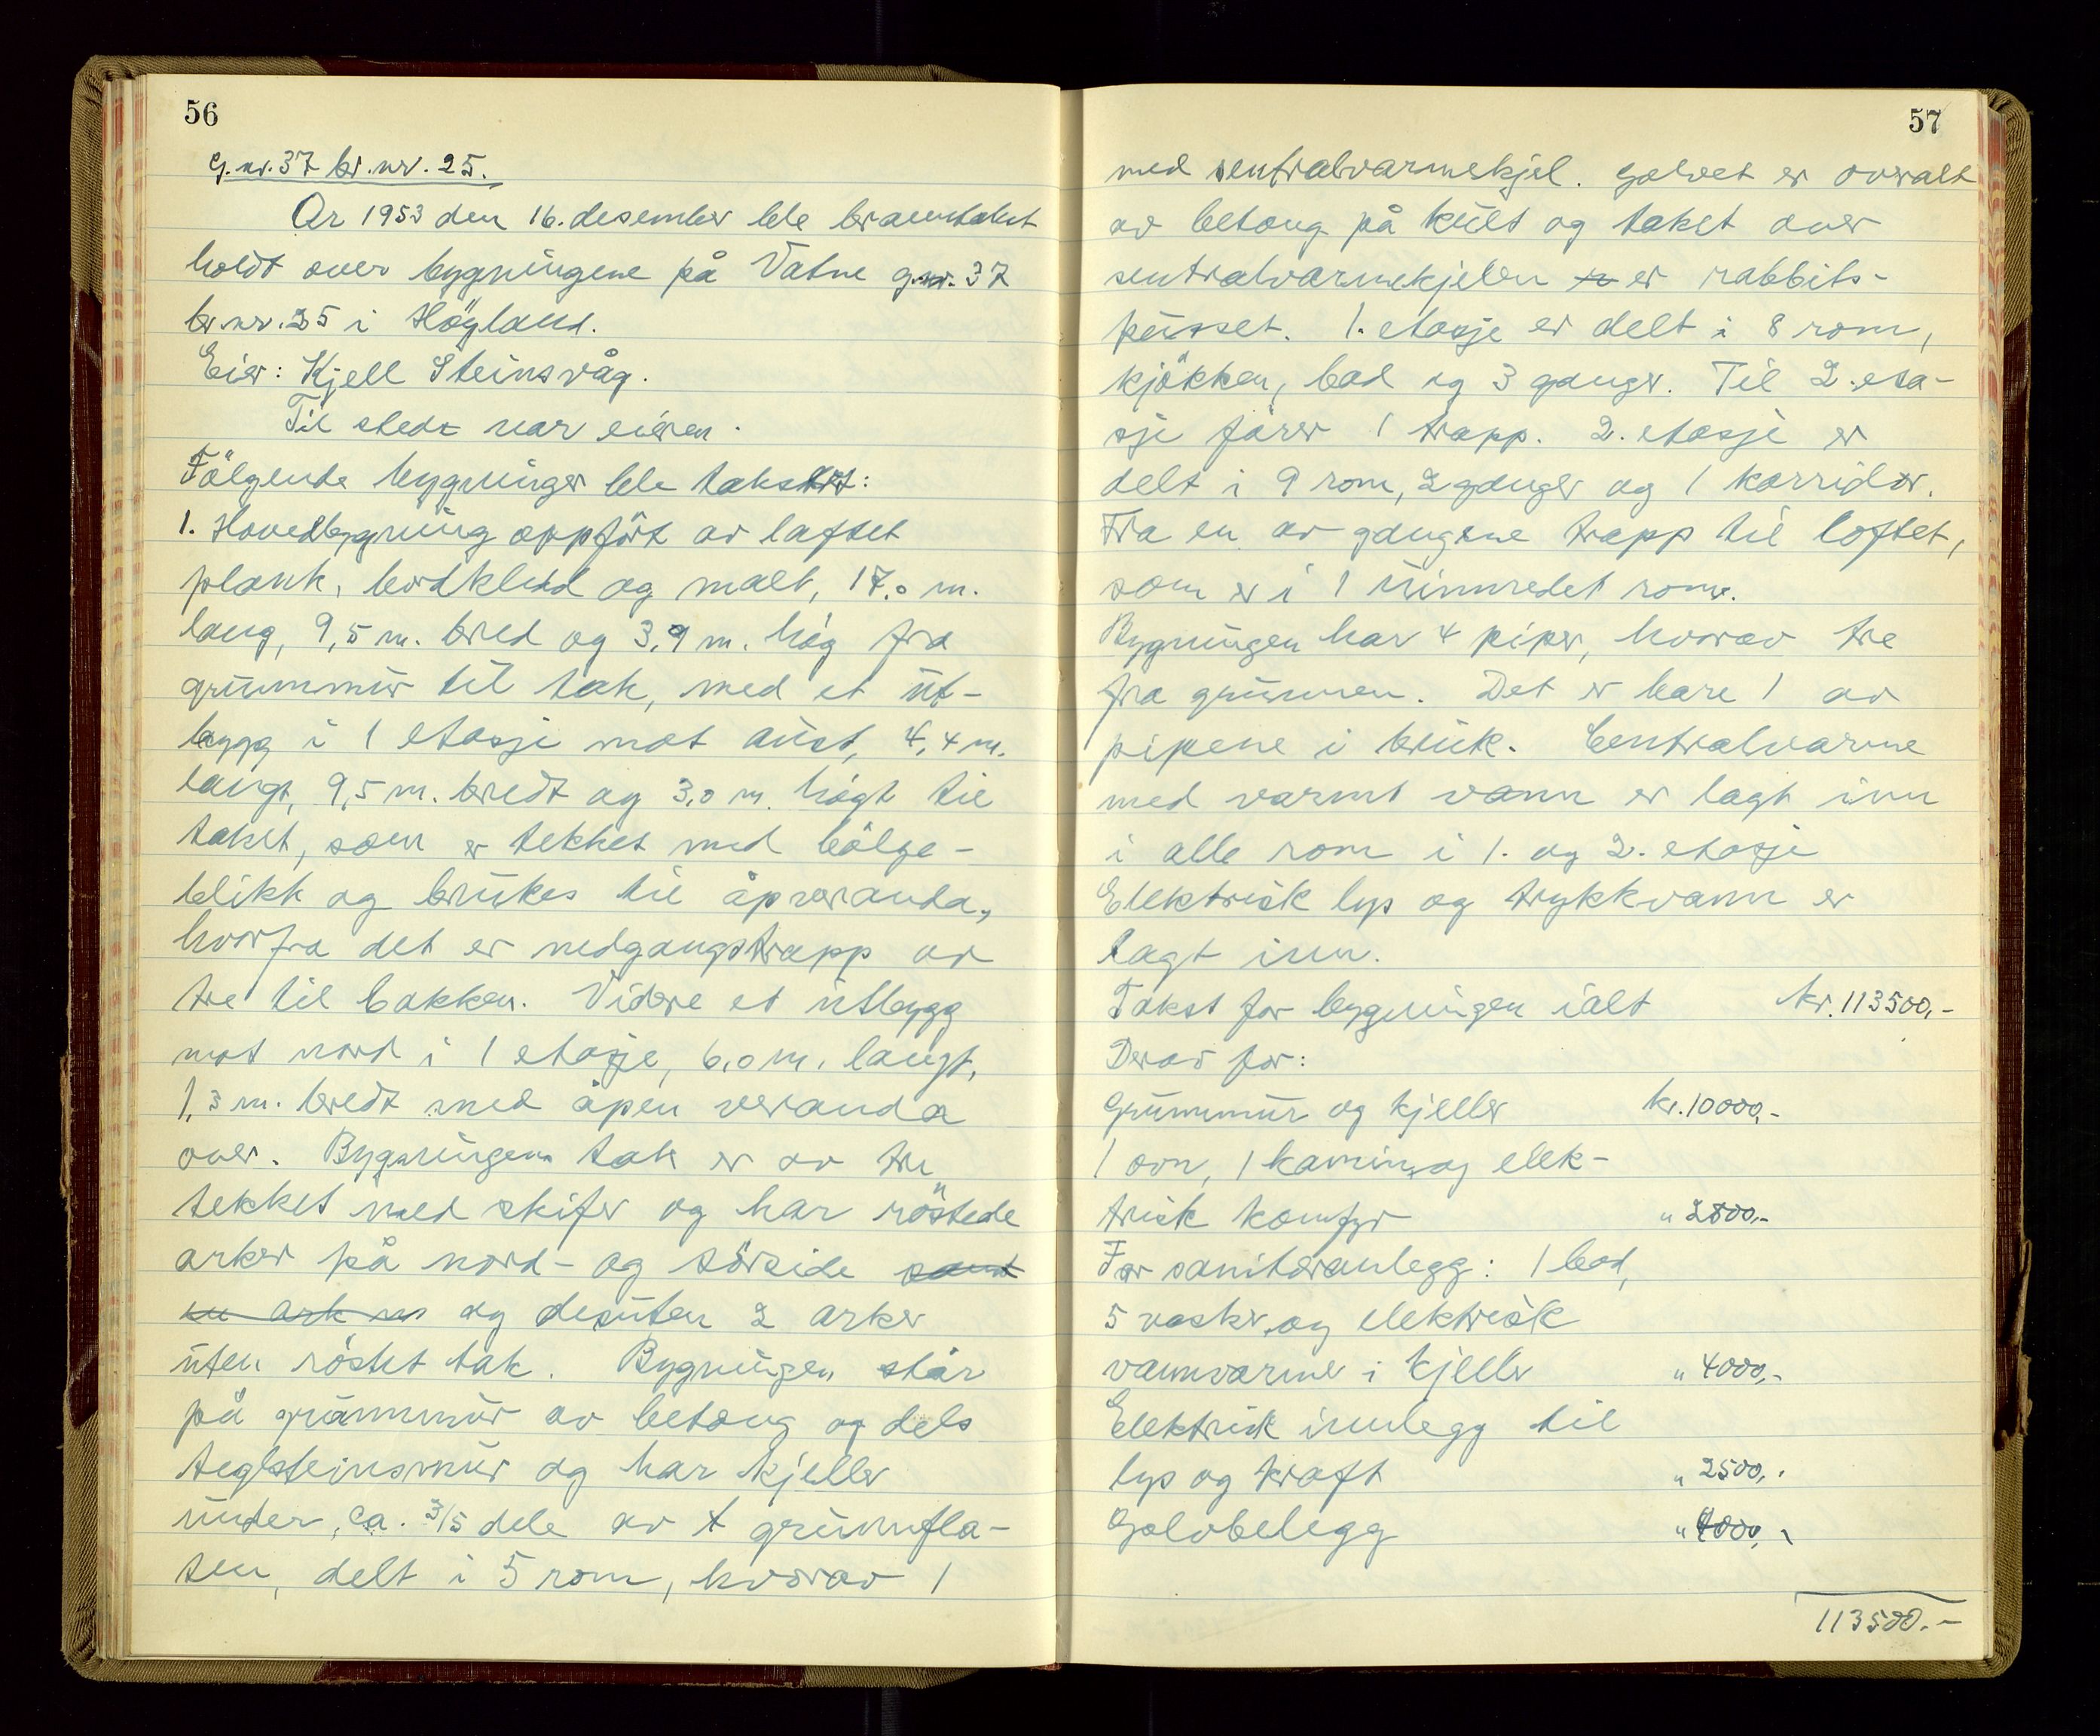 56
G.nr. 37 br.nr. 25.
År 1953 den 16. desember ble branntakst
holdt over bygningene på Vatne g.nr. 37
br.nr. 25 i Högland.
Eier: Kjell Steinsvåg.
Til stede var eieren.
Fölgende bygninger ble takstert:
1. Hovedbygning oppfört av laftet
plank, bordkledd og malt, 17,0 m.
lang, 9,5 m. bred og 3,9 m. hög fra
grunnmur til tak, med et ut-
bygg i 1 etasje mot aust, 4,4 m.
langt, 9,5 m. bredt og 3,0 m. högt til
taket, som er tekket med bölge-
blikk og brukes til åpveranda,
hvorfra det er nedgangstrapp av
tre til bakken. Videre et utbygg
mot nord i 1 etasje, 6,0 m. langt,
1,3 m. bredt med åpen veranda
over. Bygningens tak er av tre
tekket med skifer og har röstede
arker på nord- og sörside samt
en ark m og desuten 2 arker
uten röstet tak. Bygningen står
på grunnmur av betong og dels
teglsteinsmur og har kjeller
under, ca. 3/5 dele av t grunnfla-
ten, delt i 5 rom, hvorav 1
57
med sentralvarmekjel. Golvet er overalt
av betong på kult og taket over
sentralvarmekjelen er rabbits-
pusset. 1. etasje er delt i 8 rom,
kjökken, bad og 3 ganger. Til 2. eta-
sje förer 1 trapp. 2. etasje er
delt i 9 rom, 2 ganger og 1 korridor.
Fra en av gangene trapp til loftet,
som er i 1 uinnredet rom.
Bygningen har 4 piper, hvorav tre
fra grunnen. Det er bare 1 av
pipene i bruk. Centralvarme
med varmt vann er lagt inn
i alle rom i 1. og 2. etasje
Elektrisk lys og trykkvann er
lagt inn.
Takst for bygningen ialt kr. 113500,-
Derav for:
Grunnmur og kjeller kr. 10000,-
1 ovn, 1 kamin og elek-
trisk komfyr " 2800,-
For saniteranlegg: 1 bad,
5 vasker og elektrisk
vannvarmer i kjeller " 4000,-
Elektrisk innlegg til
lys og kraft " 2500,-
Golvbelegg " 4000,-
113500.-